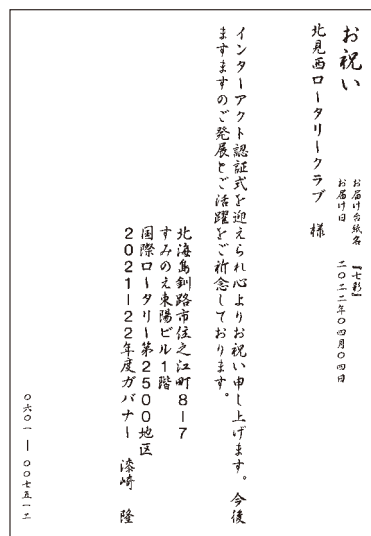 お祝い
お届け台紙名 『七彩』
お届け日 二〇二二年〇四月〇四日
北見西ロータリークラブ 様
インターアクト認証式を迎えられ心よりお祝い申し上げます。今後
ますますのご発展とご活躍をご祈念しております。
北海道釧路市住之江町8-7
すみのえ東陽ビル1階
国際ロータリー第2500地区
2021-22年度ガバナー 漆崎 隆
〇六〇一 ― 〇〇七五一二